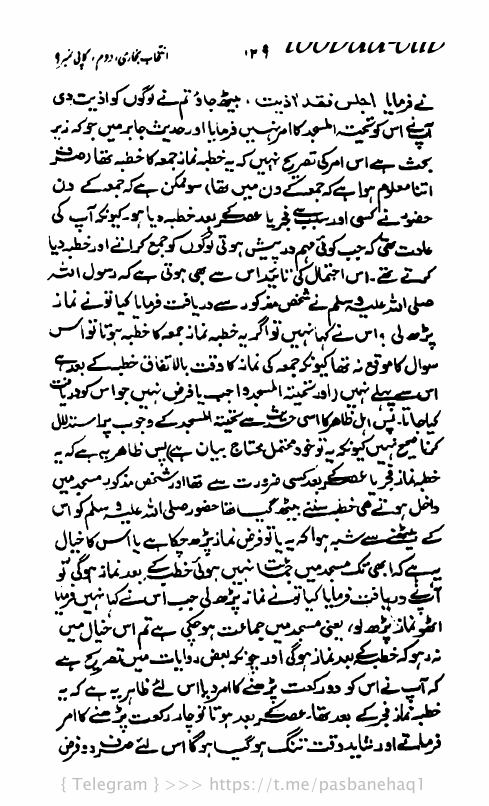 انتخاب بخاری، دوم، کاپی نمبر ۹ ۱۲۹ toobaa-elib
نے فرمایا اجلس فقد اذیت، بیٹھ جاؤ تم نے لوگوں کو اذیت دی
آپ نے اس کو تحیۃ المسجد کا امر نہیں فرمایا اور حدیث جابر میں جو کہ زیر
بحث ہے اس امر کی تصریح نہیں کہ یہ خطبہ نماز جمعہ کا خطبہ تھا (صرف
اتنا معلوم ہوا ہے کہ جمعہ کے دن میں تھا) سو ممکن ہے کہ جمعہ کے دن
حضورؐ نے کسی اور سبب سے فجر یا عصر کے بعد خطبہ دیا ہو کیونکہ آپ کی
عادت تھی کہ جب کوئی مہم درپیش ہوتی لوگوں کو جمع کراتے اور خطبہ دیا
کرتے تھے۔ اس احتمال کی تائید اس سے بھی ہوتی ہے کہ رسول اللہ
صلی اللہ علیہ وسلم نے شخص مذکور سے دریافت فرمایا کیا تو نے نماز
پڑھ لی؟ اس نے کہا نہیں تو اگر یہ خطبہ نماز جمعہ کا خطبہ ہوتا تو اس
سوال کا موقع نہ تھا کیونکہ جمعہ کی نماز کا وقت بالاتفاق خطبہ کے بعد ہے
اس سے پہلے نہیں (اور تحیۃ المسجد واجب یا فرض نہیں جو اس کو دریافت
کیا جاتا۔ پس اہل ظاہر کا اسی حدیث سے تحیۃ المسجد کے وجوب پر استدلال
کرنا صحیح نہیں کیونکہ یہ تو خود محتمل محتاج بیان ہے) پس ظاہر یہ ہے کہ یہ
خطبہ نماز فجر یا عصر کے بعد کسی ضرورت سے تھا اور شخص مذکور مسجد میں
داخل ہوتے ہی خطبہ سننے بیٹھ گیا تھا حضور صلی اللہ علیہ وسلم کو اس
کے بیٹھنے سے شبہ ہوا کہ یہ یا تو فرض نماز پڑھ چکا ہے یا اس کا خیال
یہ ہے کہ ابھی تک مسجد میں جماعت نہیں ہوئی خطبہ کے بعد نماز ہوگی تو
آپ نے دریافت فرمایا کیا تو نے نماز پڑھ لی جب اس نے کہا نہیں فرمایا
اٹھو نماز پڑھ لو، یعنی مسجد میں جماعت ہو چکی ہے تم اس خیال میں
نہ رہو کہ خطبہ کے بعد نماز ہوگی اور چونکہ بعض روایات میں تصریح ہے
کہ آپ نے اس کو دو رکعت پڑھنے کا امر دیا اس لئے ظاہر یہ ہے کہ یہ
خطبہ نماز فجر کے بعد تھا۔ عصر کے بعد ہوتا تو چار رکعت پڑھنے کا امر
فرماتے اور شاید وقت تنگ ہو گیا ہوگا اس لئے صرف دو فرض
{ Telegram } >>> https://t.me/pasbanehaq1